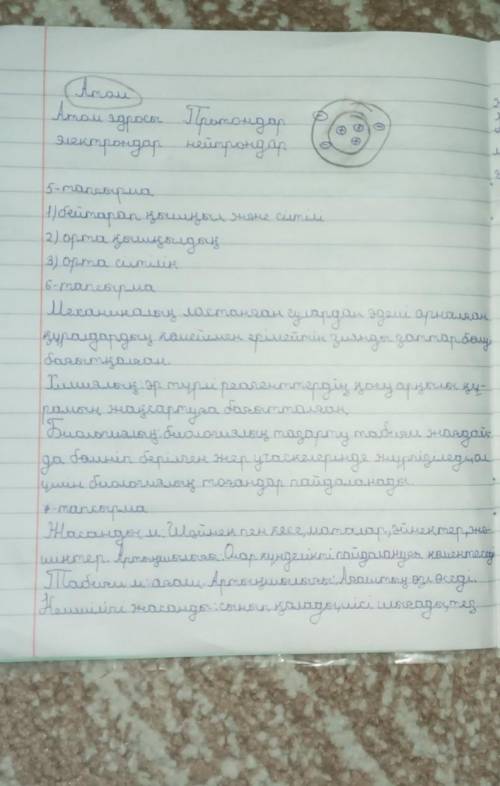 Атом
Атом ядросы Протондар
электрондар нейтрондар
5-тапсырма
1) бейтарап қышқыл және сілтілі
2) орта қышқылдық
3) орта сілтілік
6-тапсырма
Механикалық ластанған сулардан әдейі арналған
құралдардың көмегімен ерімейтін зиянды заттар бөлу
бағытталған.
Химиялық: әр түрлі реагенттердің қосу арқылы құ-
рамын жақсартуға бағытталған.
Биологиялық: биологиялық тазарту табиғи жағдай-
да бөлініп берілген жер учаскелерінде жүргізіледі, ол
үшін биологиялық тоғандар пайдаланады.
7-тапсырма
Жасанды м: Шәйнек пен кесе, маталар, әйнектер,
шиналар. Артықшылығы: Олар күнделікті пайдалануға
Табиғи м: ағаш. Артықшылығы: Ағаштың өзі өседі.
Кемшілігі жасанды: сынып қалады, иісі шығады, тез